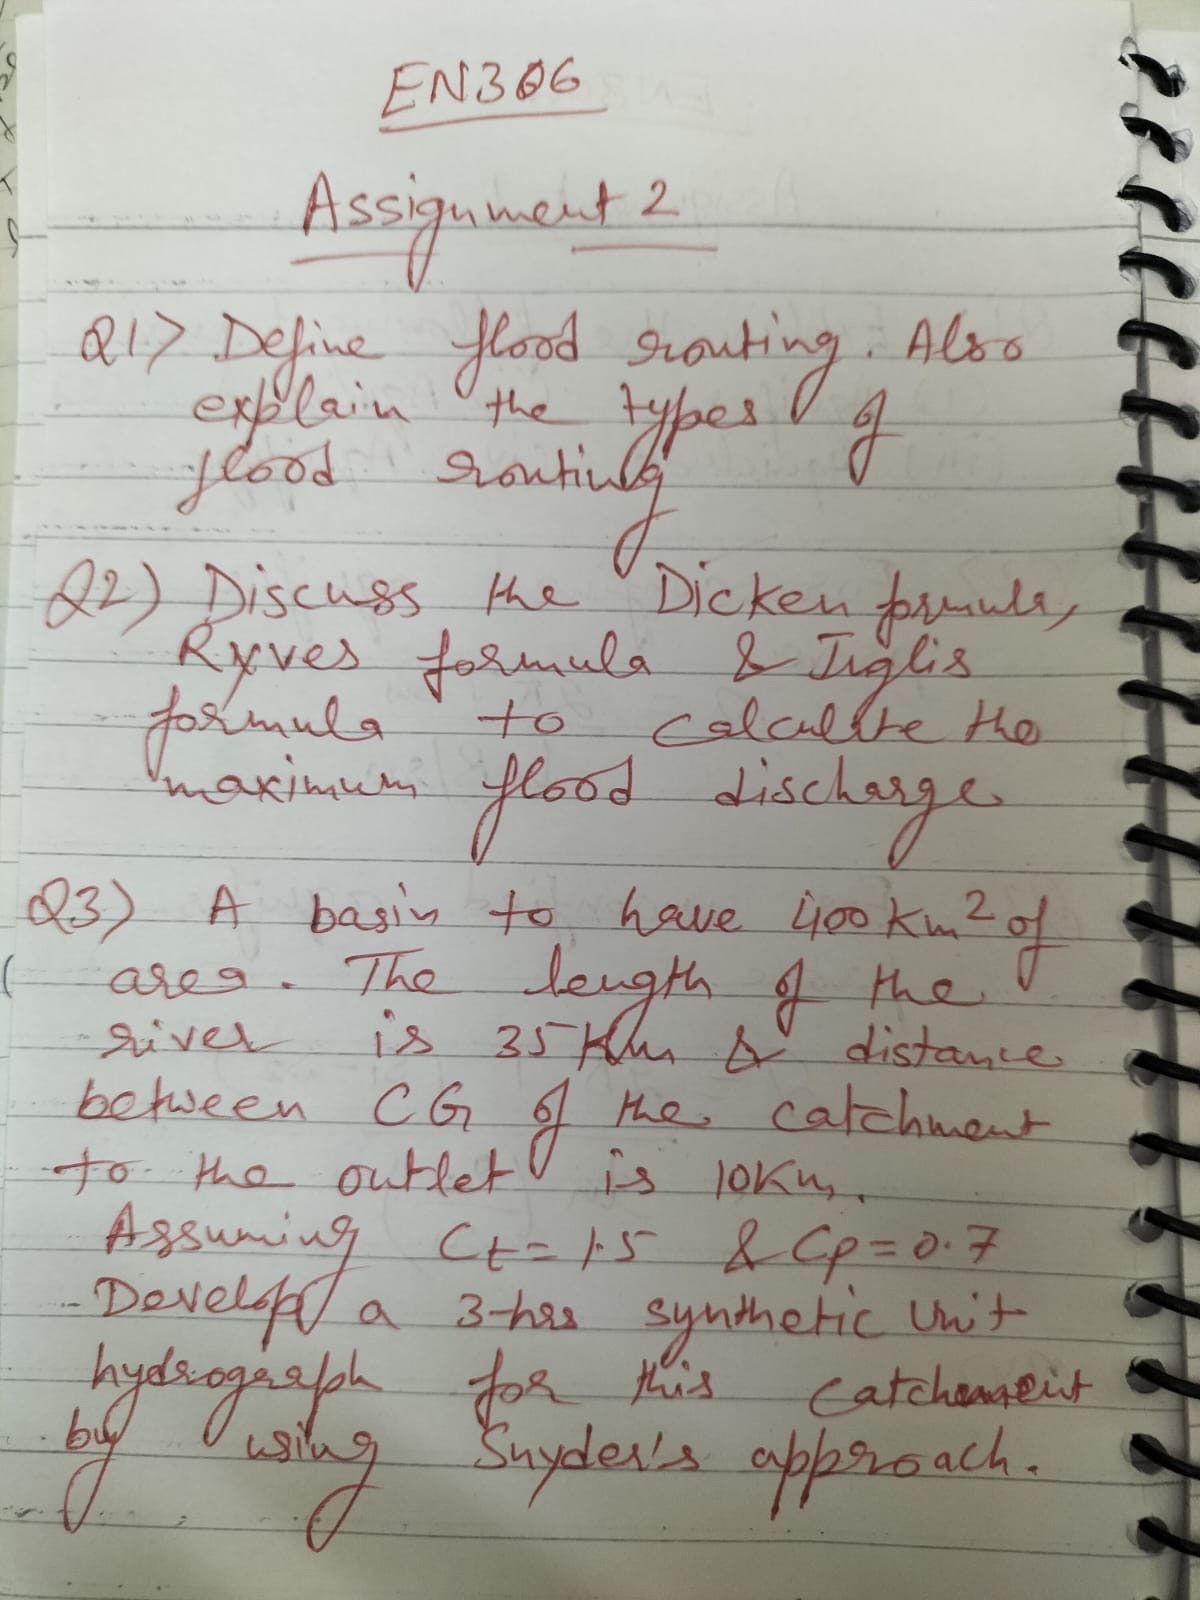 EN306
Assignment 2
Q1> Define flood routing. Also
explain the types of
flood routing
Q2) Discuss the Dicken formula,
Ryves formula & Inglis
formula to calculate the
maximum flood discharge
Q3) A basin to have 400 Km² of
area. The length of the
river is 35 Km & distance
between CG of the catchment
to the outlet is 10Km.
Assuming Ct = 1.5 & Cp = 0.7
Develop a 3-hrs synthetic Unit
hydrograph for this catchment
by using Snyder's approach.